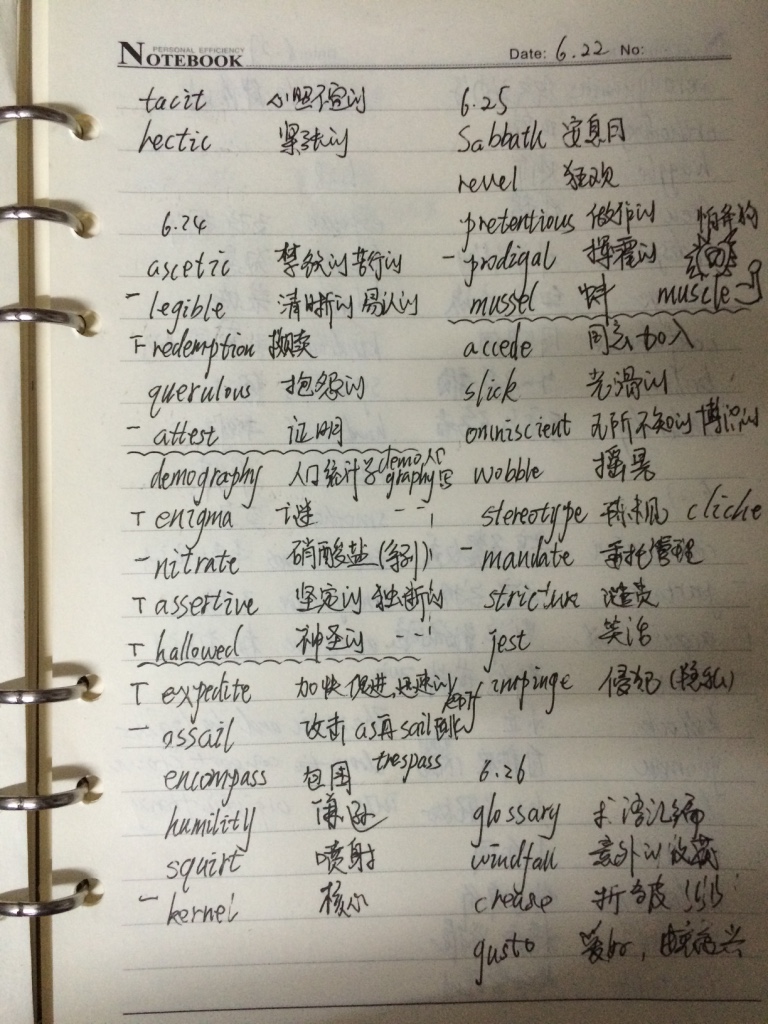 PERSONAL EFFICIENCY
NOTEBOOK
Date: 6.22 No:
tacit 心照不宣的
hectic 紧张的
6.24
ascetic 禁欲的 苦行的
- legible 清晰的 易认的
T redemption 救赎
querulous 抱怨的
- attest 证明
demography 人口统计学 demo人口 graphy写
T enigma 谜
- nitrate 硝酸盐(钠)
T assertive 坚定的 独断的
T hallowed 神圣的
T expedite 加快 促进, 迅速的
- assail 攻击 as再 sail
encompass 包围 trespass
humility 谦逊
squirt 喷射
- kernel 核心
6.25
Sabbath 安息日
revel 狂欢
pretentious 做作的
- prodigal 挥霍的
mussel 蚌 muscle
accede 同意 加入
slick 光滑的
omniscient 无所不知的 博识的
wobble 摇晃
stereotype cliche
- mandate 委托管理
stricture 谴责
jest 笑话
impinge 侵犯(隐私)
6.26
glossary 术语汇编
windfall 意外的收获
crease 折 皱
gusto 爱好,